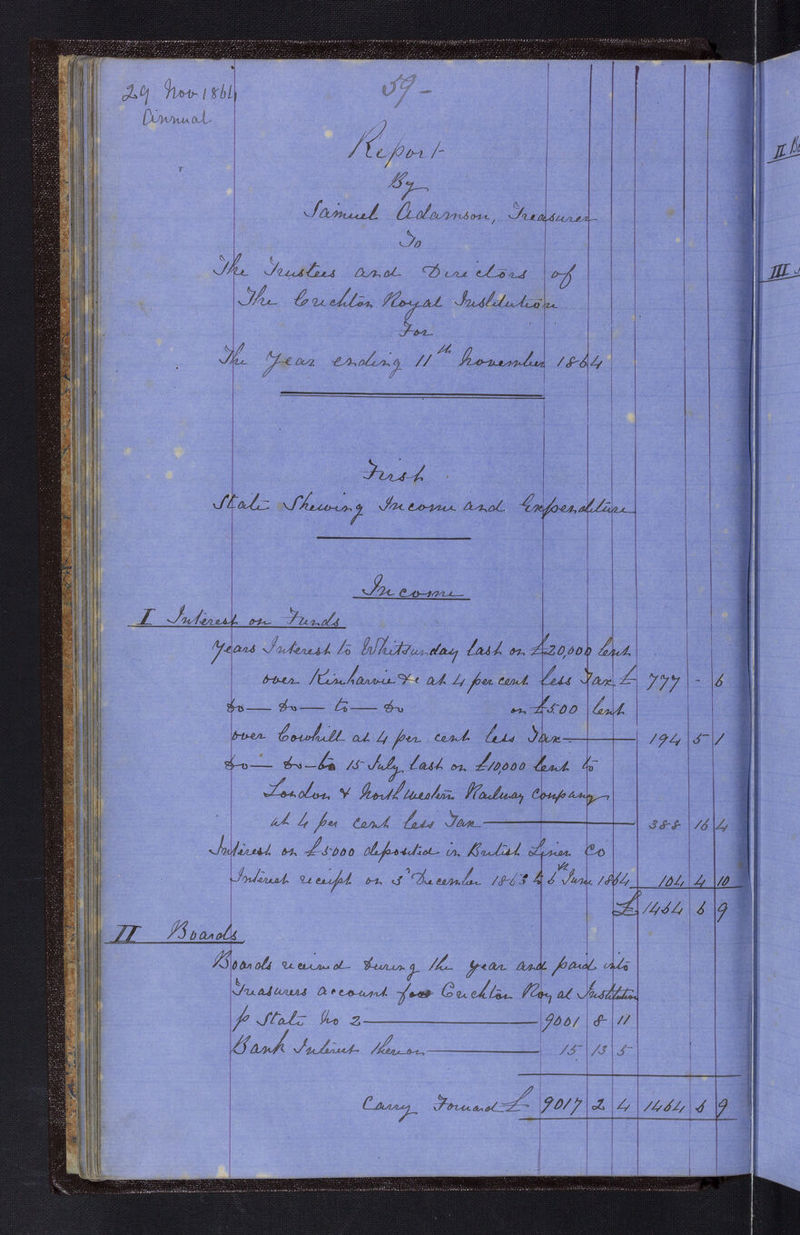 29 Nov 1864
Annual
59-
Report
By
Samuel Adamson, Treasurer
To
The Trustees and Directors of
The Crichton Royal Institution
For
The Year ending 11th November 1864
First
State Shewing Income and Expenditure
Income
I Interest on Funds
Years Interest to Whitsunday last on £20,000 lent
over Kinharvie &c at 4 per cent less Tax £ 777 - 6
Do — Do — to — Do on £5.00 lent
over Cowhill at 4 per cent less Tax — 194 5 1
Do — Do — to 15 July last on £10,000 lent to
London & North Western Railway Company
at 4 per Cent less Tax — 388 16 4
Interest on £5000 deposited in British Linen Co
Interest receipt on 3d December 1863 to 6th June 1864 104 4 10
£ 1464 6 9
II Boards
Boards received during the year and paid into
Treasurers account for Crichton Royal Institution
p State No 2 — 9001 8 11
Bank Interest thereon — 15 13 5
Carry Forward £ 9017 2 4 1464 6 9
II Bo
III